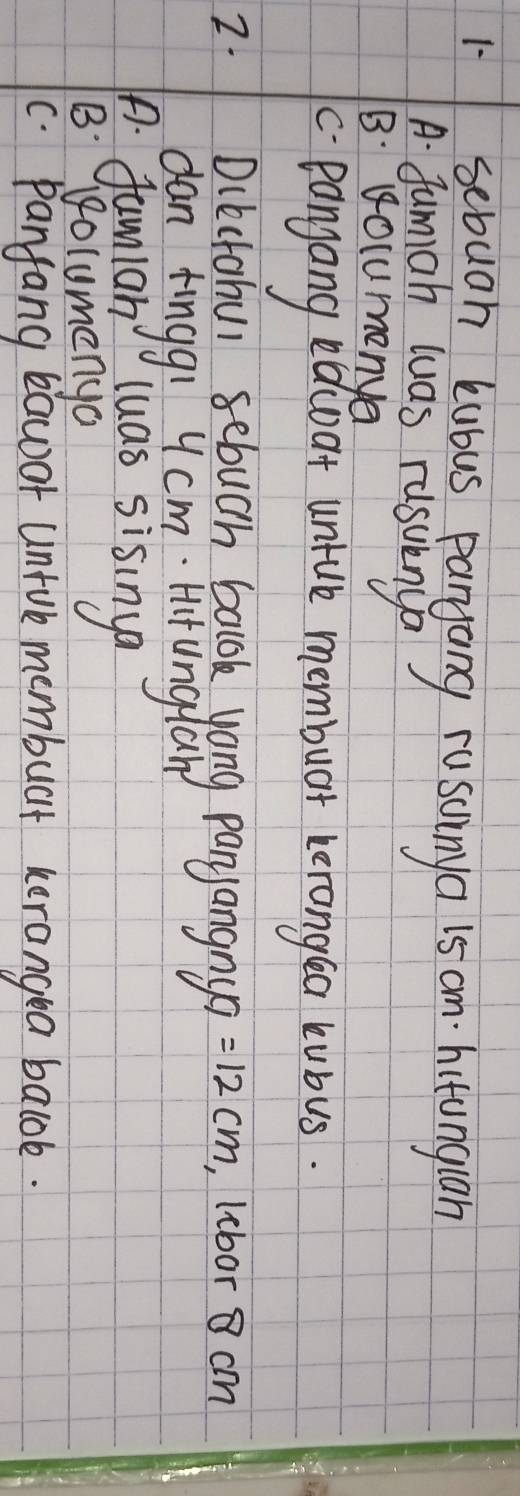 1. Sebuah kubus panjang rusuknya 15 cm. hitunglah
A. Jumlah luas rusuknya
B. Volumenya
C. Panjang kawat untuk membuat kerangka kubus.
2. Diketahui sebuah balok yang panjangnya = 12 cm, lebar 8 cm
dan tinggi 4 cm. Hitunglah
A. Jumlah luas sisinya
B. Volumenya
C. Panjang kawat untuk membuat kerangka balok.